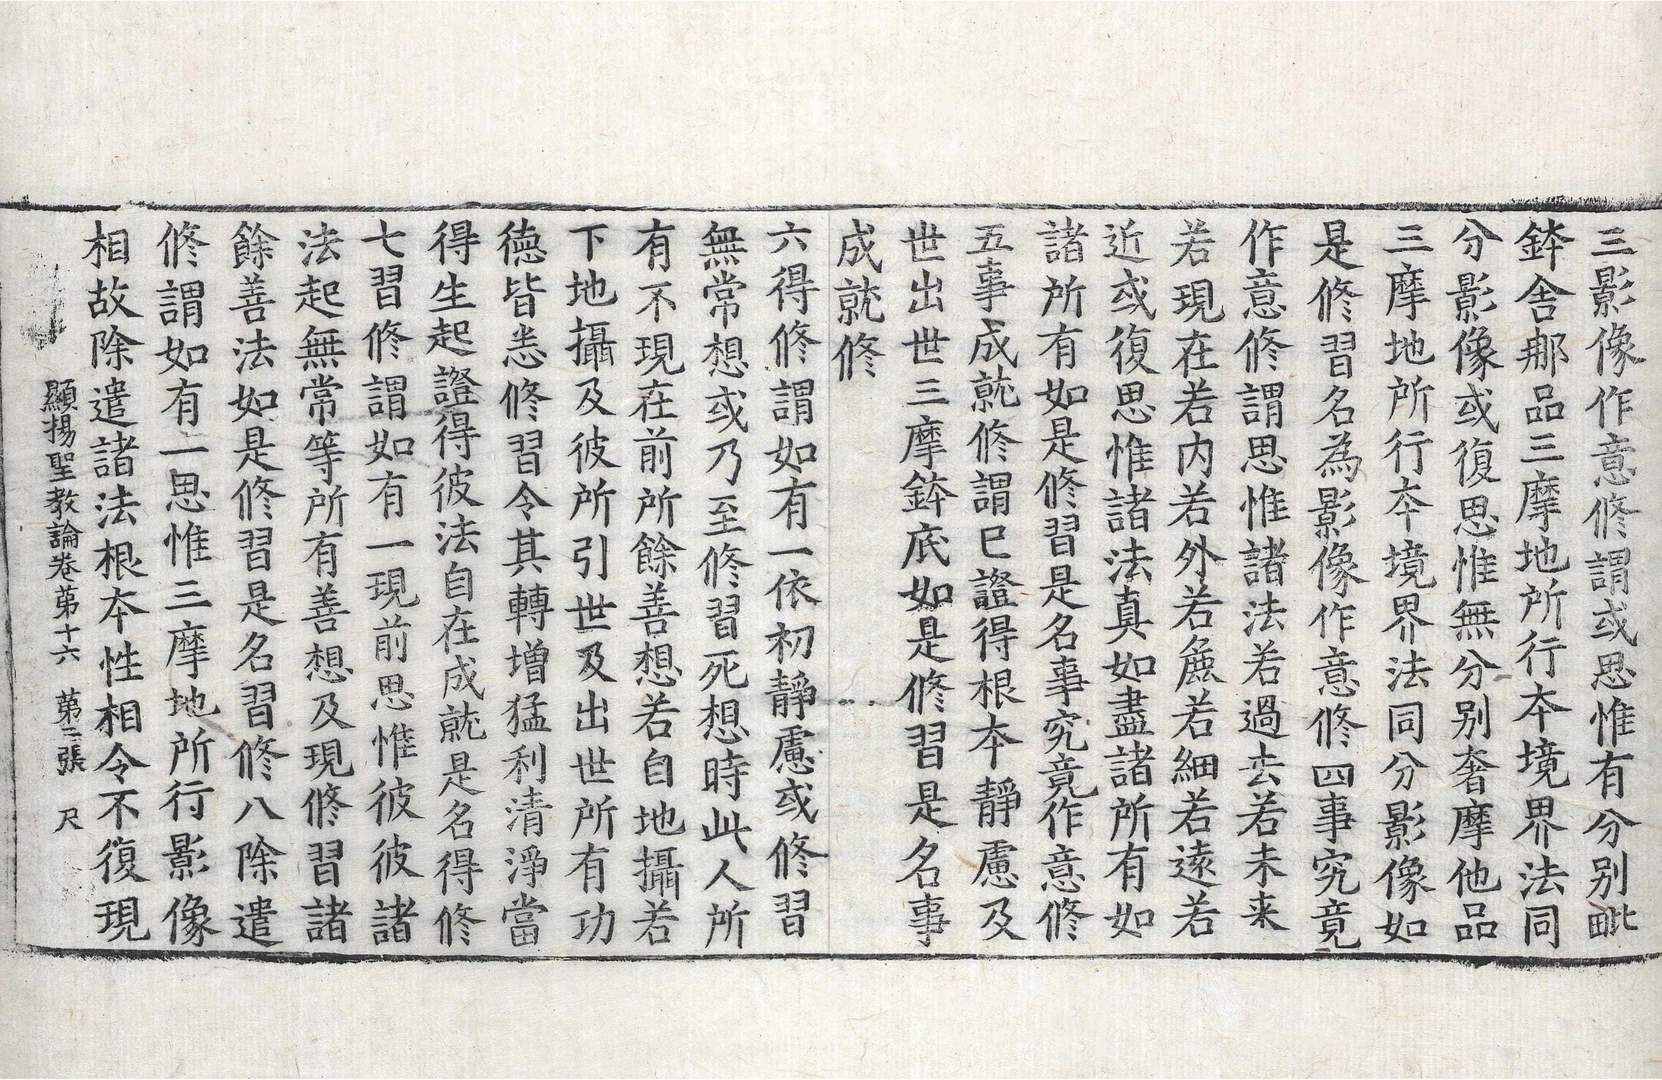 三影像作意修謂或思惟有分別毗
鉢舍那品三摩地所行本境界法同
分影像或復思惟無分別奢摩他品
三摩地所行本境界法同分影像如
是修習名為影像作意修四事究竟
作意修謂思惟諸法若過去若未来
若現在若內若外若麁若細若遠若
近或復思惟諸法真如盡諸所有如
諸所有如是修習是名事究竟作意修
五事成就修謂已證得根本靜慮及
世出世三摩鉢底如是修習是名事
成就修
六得修謂如有一依初靜慮或修習
無常想或乃至修習死想時此人所
有不現在前所餘善想若自地攝若
下地攝及彼所引世及出世所有功
德皆悉修習令其轉增猛利清淨當
得生起證得彼法自在成就是名得修
七習修謂如有一現前思惟彼彼諸
法起無常等所有善想及現修習諸
餘善法如是修習是名習修八除遣
修謂如有一思惟三摩地所行影像
相故除遣諸法根本性相令不復現
顯揚聖教論卷第十六 第三張 尺